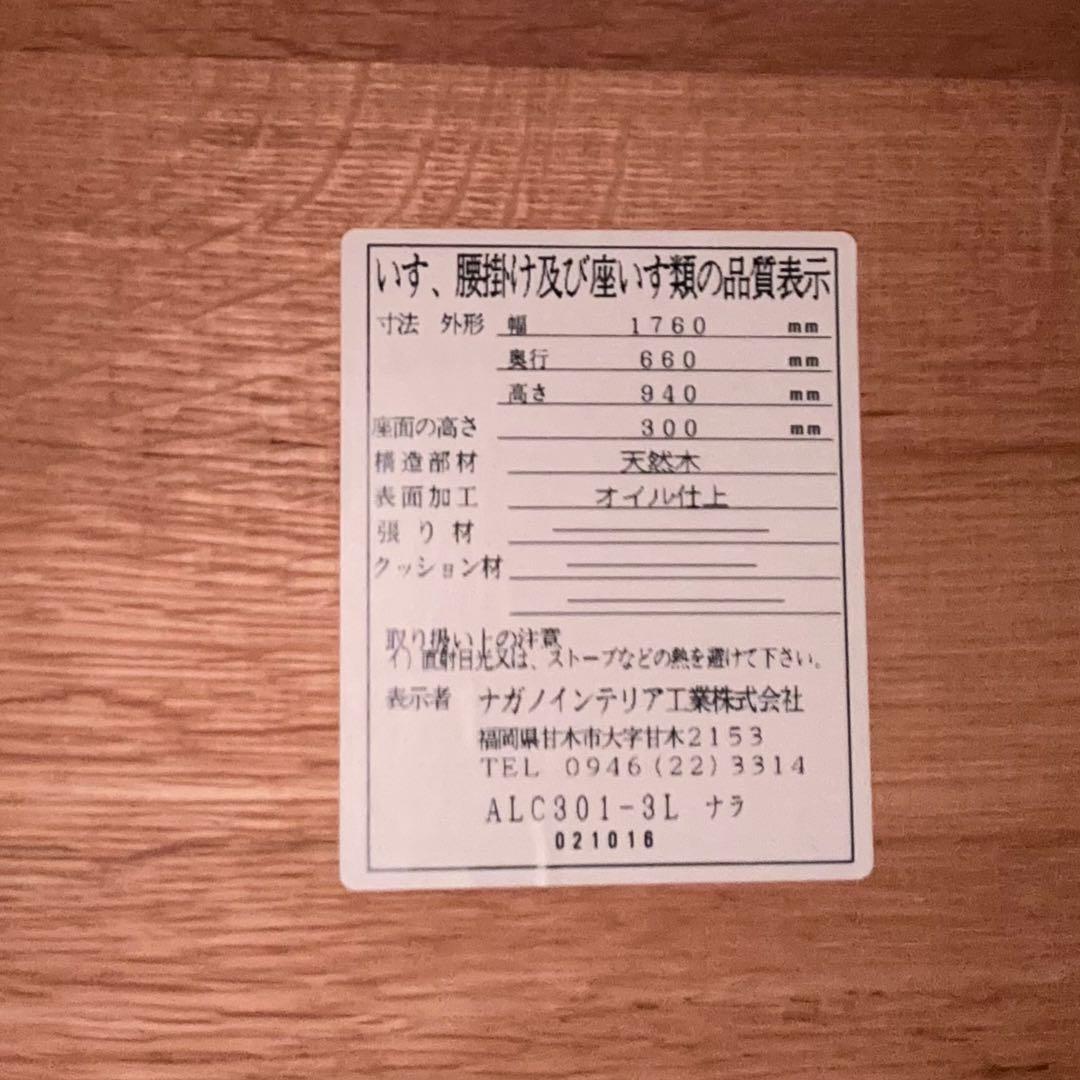 いす、腰掛け及び座いす類の品質表示
寸法 外形 幅 1760 mm
奥行 660 mm
高さ 940 mm
座面の高さ 300 mm
構造部材 天然木
表面加工 オイル仕上
張り材
クッション材
取り扱い上の注意
イ）直射日光又は、ストーブなどの熱を避けて下さい。
表示者 ナガノインテリア工業株式会社
福岡県甘木市大字甘木2153
TEL 0946(22)3314
ALC301-3L ナラ
021016